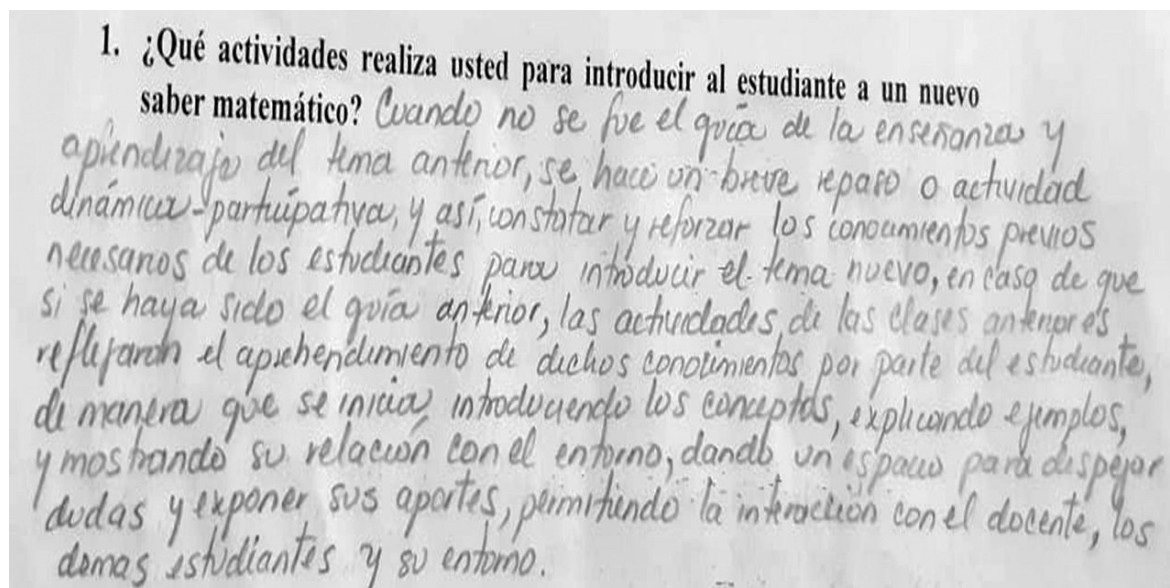 1. ¿Qué actividades realiza usted para introducir al estudiante a un nuevo
saber matemático? Cuando no se fue el guía de la enseñanza y
aprendizaje del tema anterior, se hace un breve repaso o actividad
dinámica-participativa, y así, constatar y reforzar los conocimientos previos
necesarios de los estudiantes para introducir el tema nuevo, en caso de que
si se haya sido el guía anterior, las actividades de las clases anteriores
reflejaron el aprehendimiento de dichos conocimientos por parte del estudiante,
de manera que se inicia introduciendo los conceptos, explicando ejemplos,
y mostrando su relación con el entorno, dando un espacio para despejar
dudas y exponer sus aportes, permitiendo la interacción con el docente, los
demas estudiantes y su entorno.